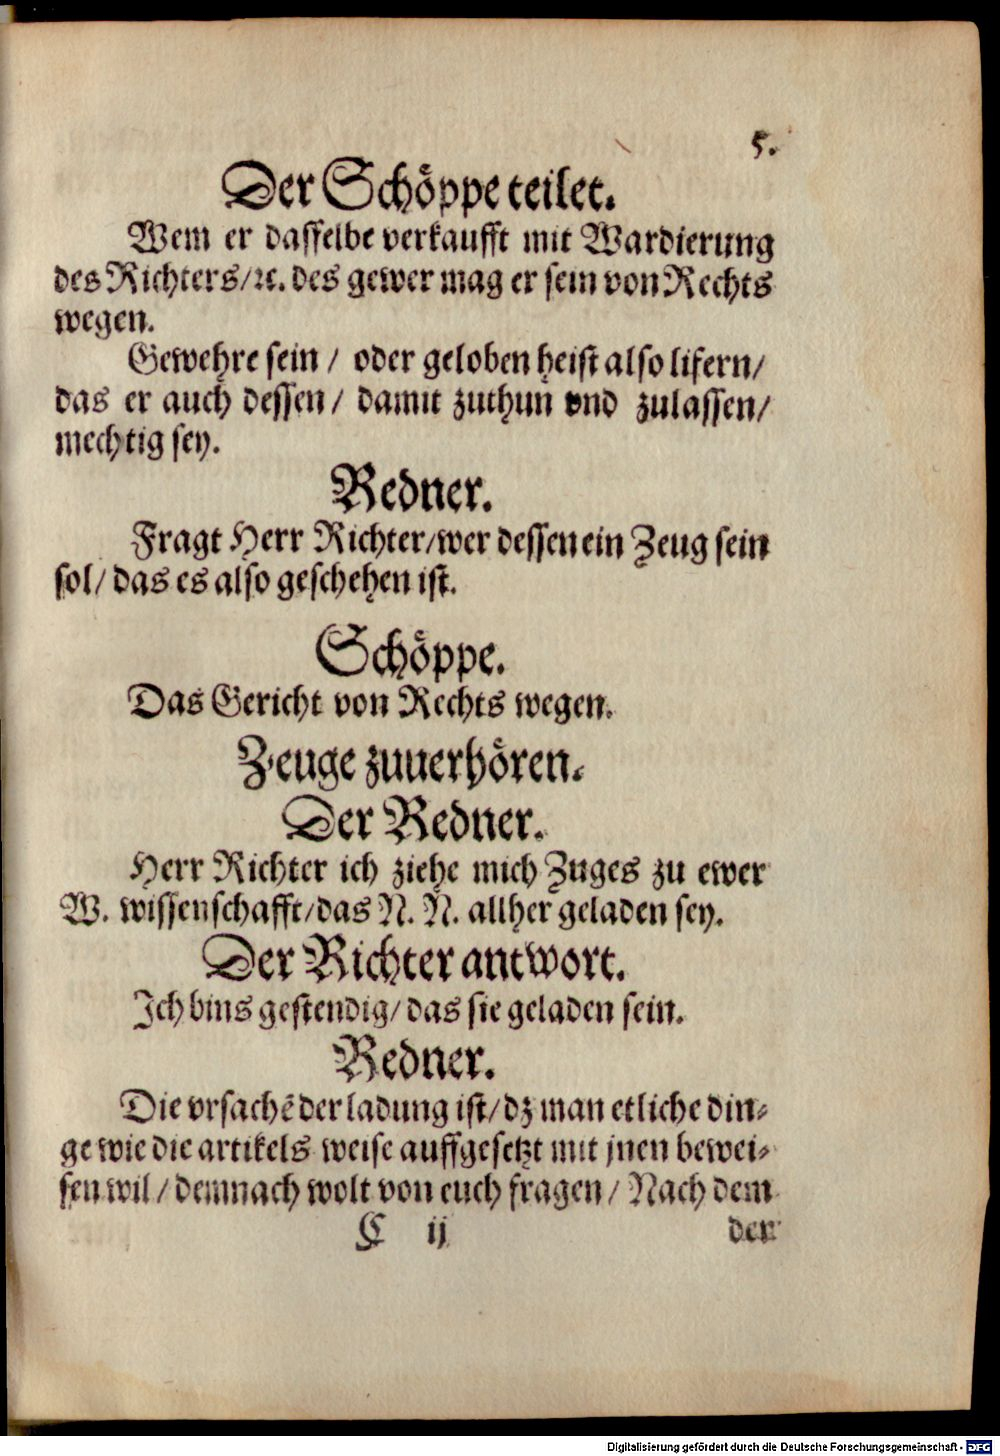 5.
Der Schöppe teilet.
Wem er dasselbe verkaufft mit Wardierung
des Richters/ ꝛc. des gewer mag er sein von Rechts
wegen.
Gewehre sein / oder geloben heist also lifern/
das er auch dessen / damit zuthun vnd zulassen/
mechtig sey.
Redner.
Fragt Herr Richter/wer dessen ein Zeug sein
sol/ das es also geschehen ist.
Schöppe.
Das Gericht von Rechts wegen.
Zeuge zuuerhören.
Der Redner.
Herr Richter ich ziehe mich Zuges zu ewer
W. wissenschafft/das N. N. allher geladen sey.
Der Richter antwort.
Ich bins gestendig/ das sie geladen sein.
Redner.
Die vrsachē der ladung ist/ dz man etliche din-
ge wie die artikels weise auffgesetzt mit jnen bewei-
sen wil / demnach wolt von euch fragen / Nach dem
C ij der
Digitalisierung gefördert durch die Deutsche Forschungsgemeinschaft - DFG